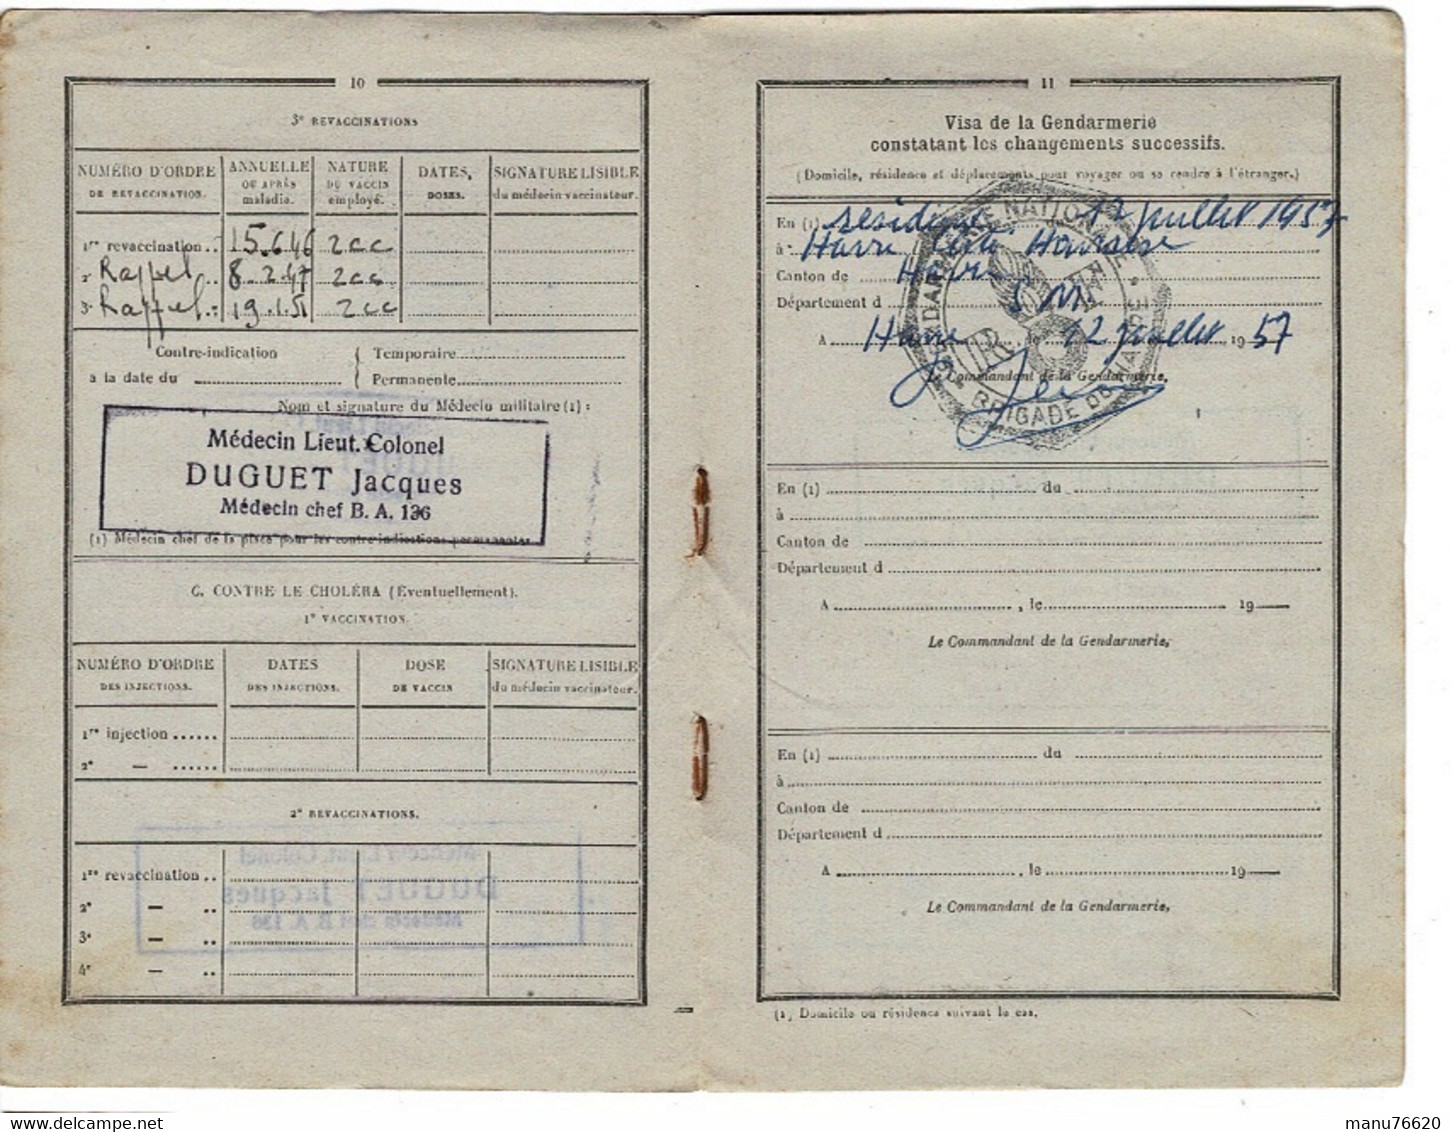 10
3e REVACCINATIONS
NUMÉRO D'ORDRE DE REVACCINATION. ANNUELLE OU APRÈS maladie. NATURE DU VACCIN employé. DATES, DOSES. SIGNATURE LISIBLE du médecin vaccinateur.
1re revaccination .. 15.6.46 2cc
2e Rappel 8.2.47 2cc
3e Rappel 19.1.51 2cc
Contre-indication { Temporaire
à la date du { Permanente
Nom et signature du Médecin militaire (1) :
Médecin Lieut. Colonel
DUGUET Jacques
Médecin chef B. A. 136
(1) Médecin chef de la place pour les contre-indications permanentes.
C. CONTRE LE CHOLÉRA (Éventuellement).
1o VACCINATION.
NUMÉRO D'ORDRE DES INJECTIONS. DATES DES INJECTIONS. DOSE DE VACCIN SIGNATURE LISIBLE du médecin vaccinateur.
1re injection ......
2e — ......
2o REVACCINATIONS.
1re revaccination ..
2e — ..
3e — ..
4e — ..
11
Visa de la Gendarmerie
constatant les changements successifs.
(Domicile, résidence et déplacements pour voyager ou se rendre à l'étranger.)
En (1) résidence 12 juillet 1957
à Havre Havraise
Canton de Havre
Département d S M
A Havre, le 12 juillet 1957
Le Commandant de la Gendarmerie,
GENDARMERIE NATIONALE
BRIGADE DU HAVRE
En (1) du
à
Canton de
Département d
A , le 19
Le Commandant de la Gendarmerie,
En (1) du
à
Canton de
Département d
A , le 19
Le Commandant de la Gendarmerie,
(1) Domicile ou résidence suivant le cas.
manu76620